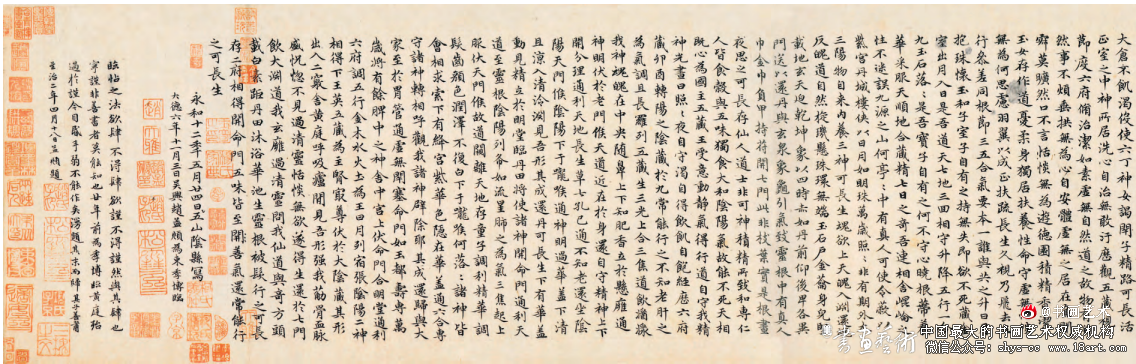 大倉不飢渴俊使六丁神女謁閉子精路可長活
正室之中神所居洗心自治無敢汙歷觀五藏視
節度六府脩治潔如素虛無自然道之故物有自
然事不煩垂拱無為心自安體虛無之居在廉間
寂莫曠然口不言恬惔無為遊德園積精香潔
玉女存作道憂柔身獨居扶養性命守虛無恬惔
無為何思慮羽翼以成正扶疏長生久視乃飛去五
行參差同根節三五合氣要本一誰與共之升日月
抱珠懷玉和子室子自有之持無失即欲不死藏金
室出月入日是吾道天七地三四相守升降五行一合
九玉石落落是吾寶子自有之何不守心曉根蒂養
華采服天順地合藏精七日之奇吾連相合崑崙之
性不迷誤九源之山何亭亭中有真人可使令蔽以
紫宮丹城樓俠以日月如明珠萬歲照照非有期外本
三陽物自來內養三神可長生魂欲上天魄入淵還魂
反魄道自然旋璣懸珠環無端玉石戶金籥身兒堅
載地玄天迴乾坤象以四時赤如丹前仰後卑各異
門送以還丹與玄泉象龜引氣致靈根中有真人
巾金巾負甲持符開七門此非枝葉實是根晝
夜思之可長存仙人道士非可神積精所致和專仁
人皆食穀與五味獨食大和陰陽氣故能不死天相
既心為國主五藏王受意動靜氣得行道自守我精
神光晝日照照夜自守渴自得飲飢自飽經歷六府
藏卯酉轉陽之陰藏于九常能行之不知老肝之
為氣調且長羅列五藏生三光上合三焦道飲醬漿
我神魂魄在中央隨鼻上下知肥香立於懸雍通
神明伏於老門候天道近在於身還自守精神上下
開分理通利天地長生草七孔已通不知老還坐陰
陽天門候陰陽下于嚨喉通神明過華蓋下清
且涼入清泠淵見吾形其成還丹可長生下有華蓋
動見精立於明堂臨丹田將使諸神開命門通利天
道至靈根陰陽列布如流星肺之為氣三焦起上
服伏天門候故道闚離天地存童子調利精華調
髮齒顏色潤澤不復白下于嚨喉何落落諸神皆
會相求索下有絳宮紫華色隱在華蓋通六合專
守諸神轉相呼觀我諸神辟除耶其成還歸與大
家至於胃管通虛無閉塞命門如玉都壽專萬
歲將有餘脾中之神舍中宮上伏命門合明堂通利
六府調五行金木水火土為王日月列宿張陰陽二神
相得下王英五藏為主腎最尊伏於大陰藏其形
出入二竅舍黃庭呼吸廬間見吾形強我筋骨血脈
盛恍惚不見過清靈恬惔無欲遂得生還於七門
飲大淵道我玄雍過清靈問我仙道與奇方頭
載白素距丹田沐浴華池生靈根被髮行之可長
存二府相得開命門五味皆至開善氣還常能行
之可長生
永和十二年五月廿四日五山陰縣寫
大德六年十一月三日吳興趙孟頫為朱季博臨
臨帖之法欲肆不得肆欲謹不得謹然與其肆也
寧謹非善書者莫能知也廿年前為季博臨黃庭殆
過於謹今目昏手弱不能作矣漫題其末而歸其子善甫
至治二年四月十八日孟頫題
@书画艺术
書畫藝術
中国最大的书画艺术权威机构
微信公众号：shys-cc www.18art.com